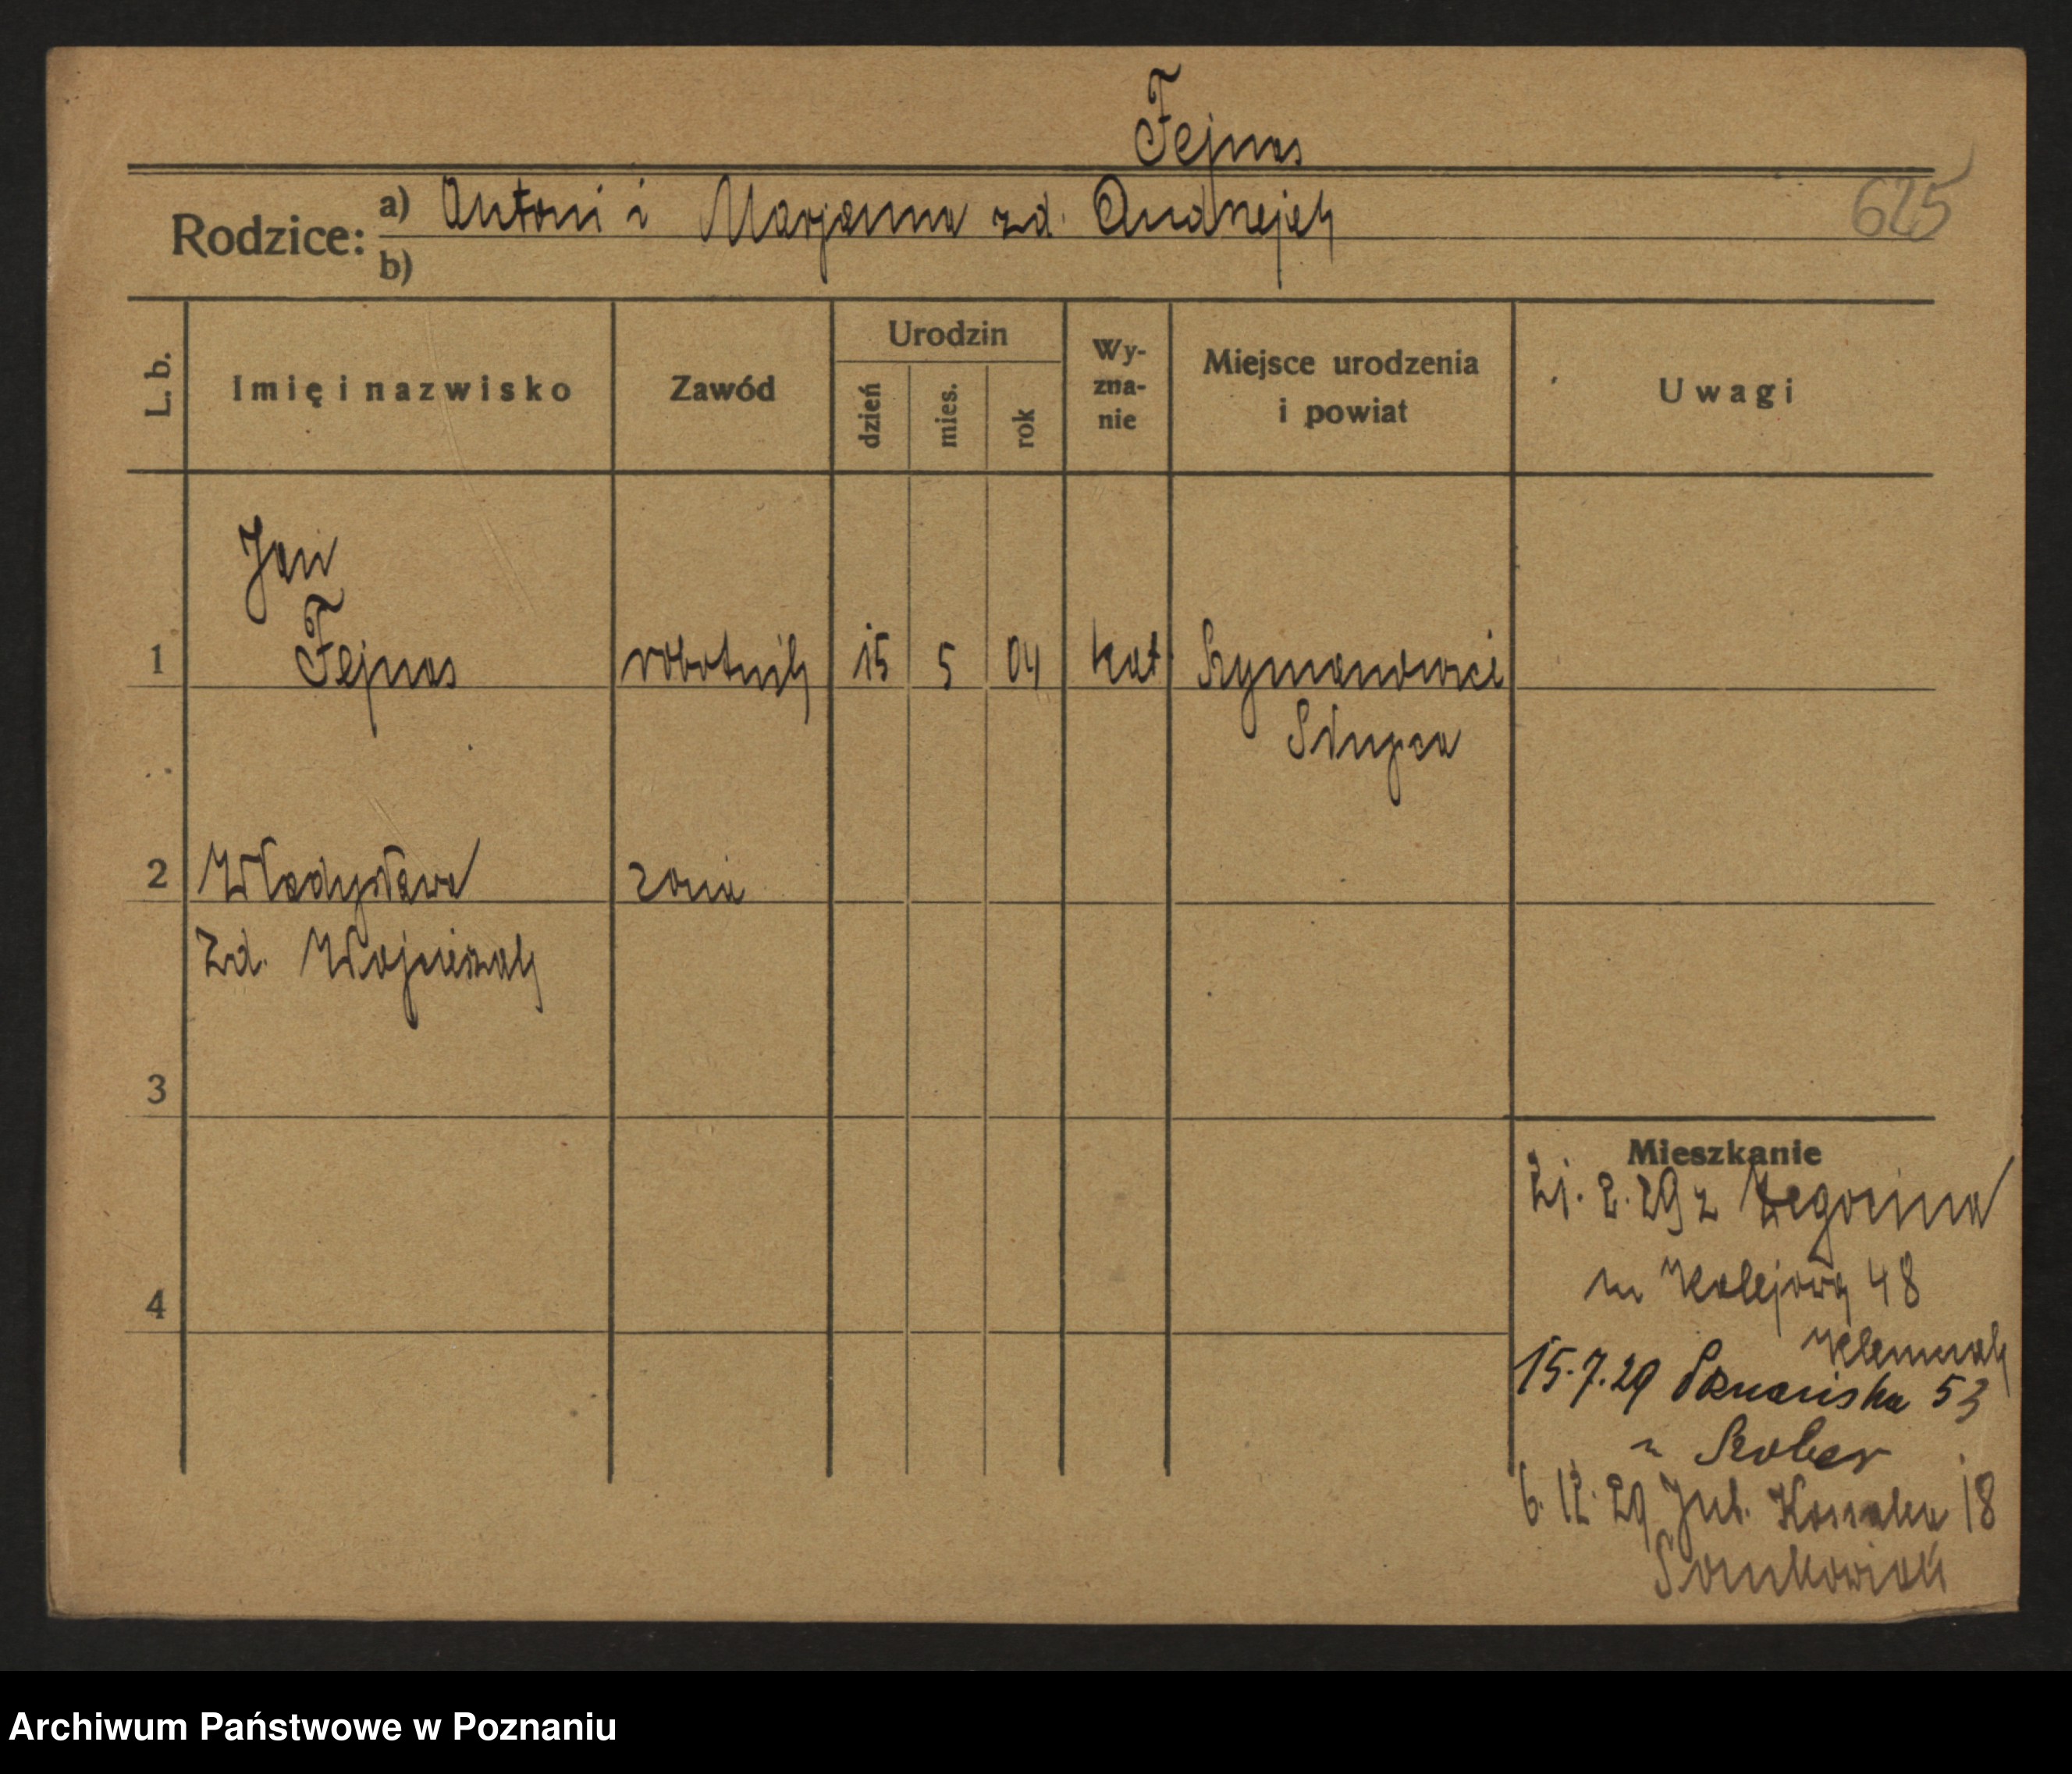 Fejnas
Rodzice: a) Antoni i Marjanna zd. Andrzejek
b)
625
L. b.
Imię i nazwisko
Zawód
Urodzin
dzień
mies.
rok
Wy-
zna-
nie
Miejsce urodzenia
i powiat
Uwagi
Jan
1 Fejnas robotnik 15 5 04 kat. Szymanowice
Słupca
2 Władysława żona
zd. Wojcieszak
3
4
Mieszkanie
21. 2. 29 z Żegocina
Kolejowa 48
15.7.29 Poznańska 53
u Szober
6. 12. 29 Jul. Kossaka 18
Archiwum Państwowe w Poznaniu